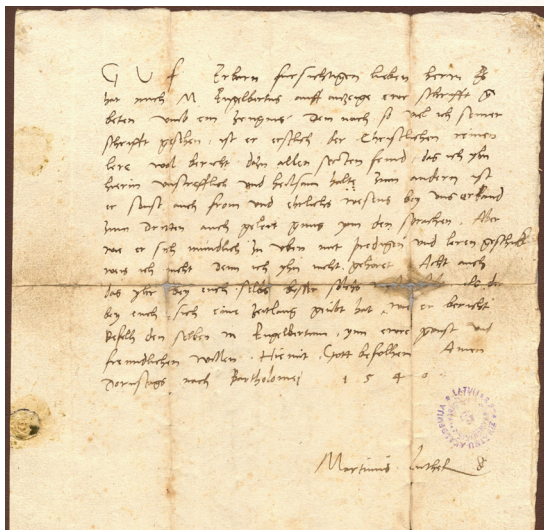 G V f Erbarn fursichtigen lieben herrn Es
hat mich M. Engelbertus auff anzeige ewr schrifft ge
beten umb ein zeugnis. Dem nach so viel ich seiner
schrifft gesehen, ist er erstlich der Christlichen reinen
lere wol bericht, dazu allen secten feind, das ich yhn
hierin unstrefflich und heilsam halte Zum andern ist
er sonst auch from und ehrlichs wesens bey uns erkand
Zum dritten auch geleret gnug ynn den sprachen. Aber
wie er sich mundlich zu uben mit predigen und leren geschickt
weis ich nicht denn ich yhn nicht gehoret Acht auch
das yhr bey euch selbs
bey euch sich eine zeitlang geubt hat, wie er bericht
Befelh den selben M Engelbertum, ynn ewre gonst und
freundlichen willen. Hiemit Gott befolhen Amen
Dornstags nach Bartholomei 1540
LATVIJAS
Martinus Luther